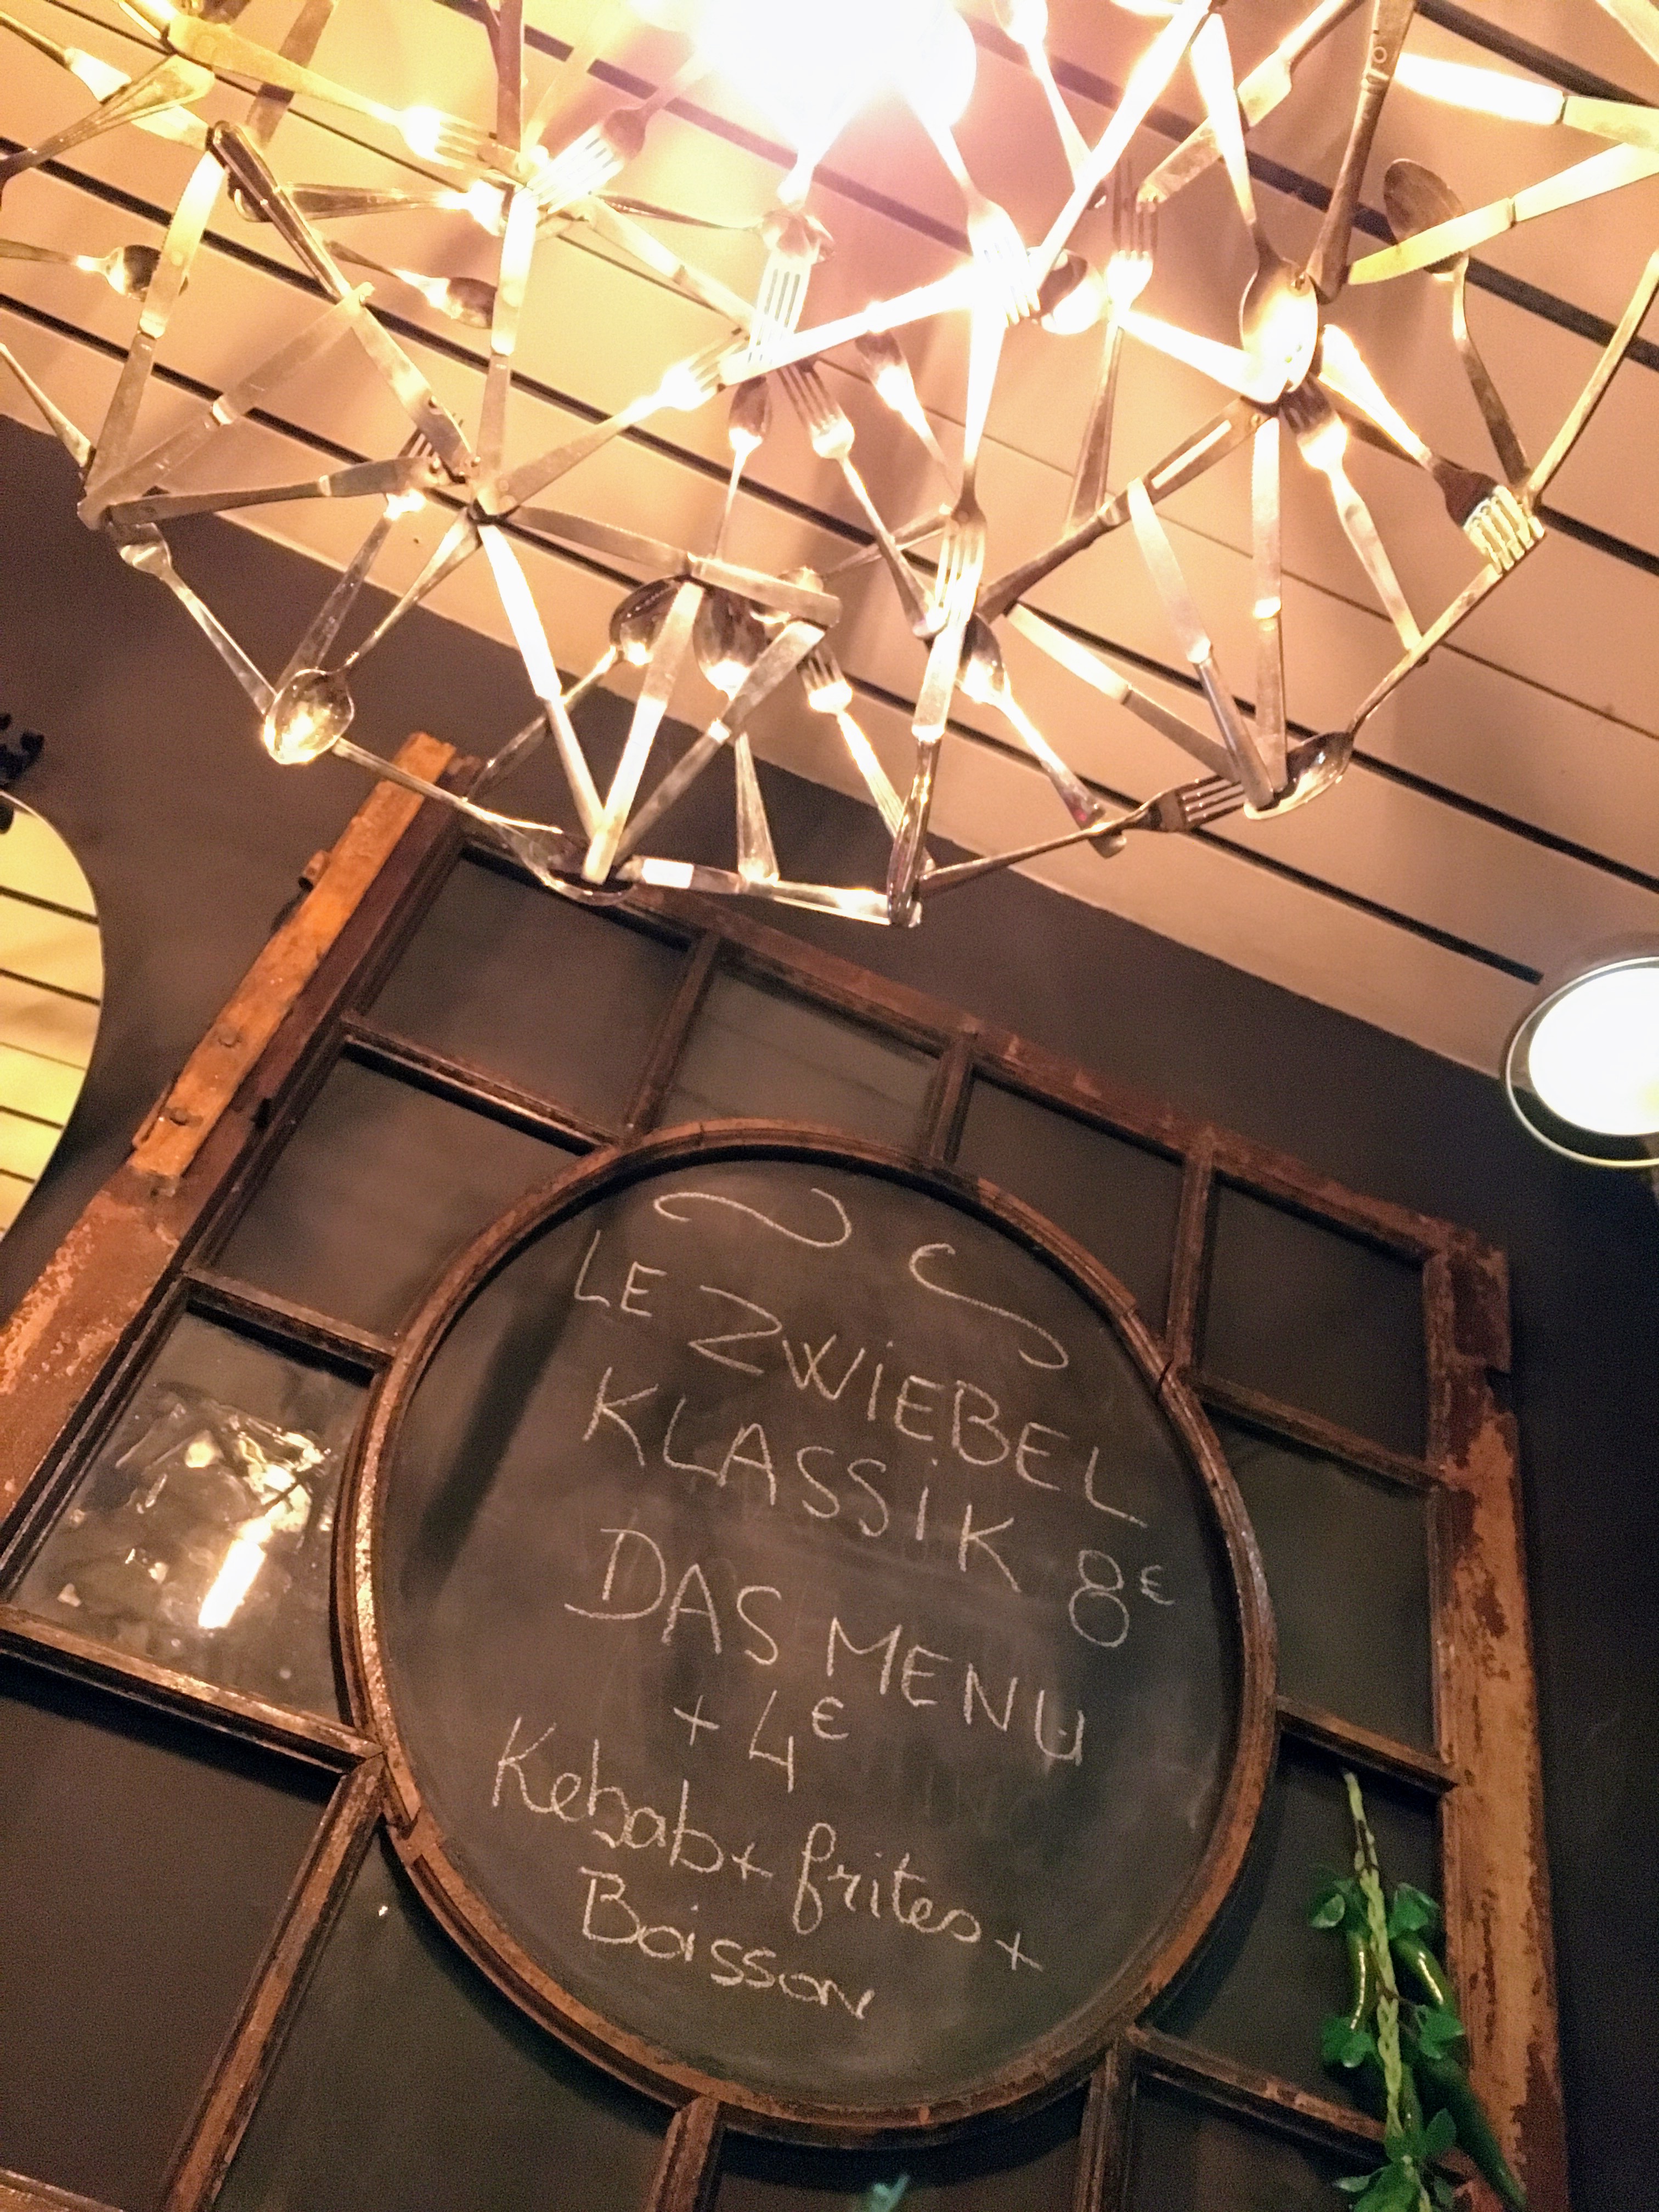 LE ZWiEBEL
KLASSiK 8€
DAS MENU
+ 4€
Kebab + frites +
Boisson